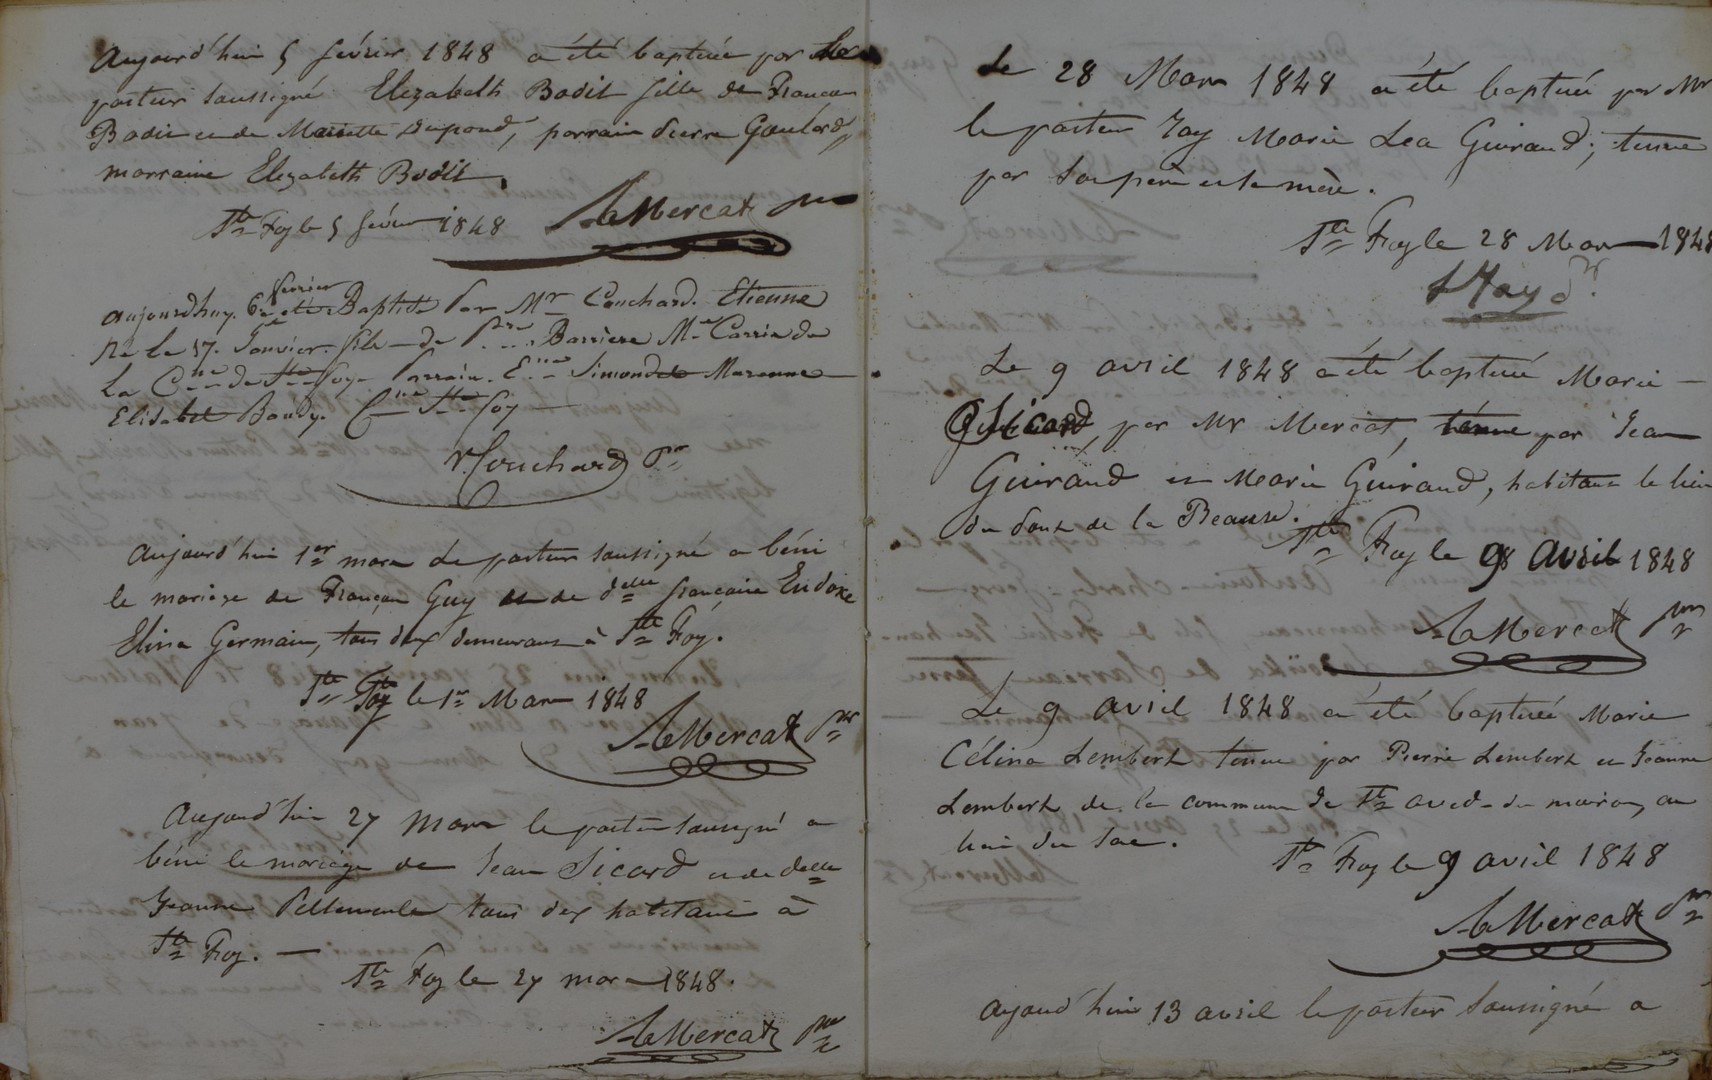 Aujourd'hui 5 févrior 1848 a été baptisée par le
pasteur soussigné Elezabeth Badit fille de François
Badit et de Mariette Dupond, parrain Pierre Goulard,
marraine Elezabeth Badit.
Ste Foy le 5 février 1848 A. Mercat pr
février
aujourdhuy. 6 a été Baptisé Par Mr Couchard. Etienne
né le 17. Janvier. fils de Barrière Me Carrié de
La Cne de Ste foy Parrain. Simond et Maraine
Elisabet Baudy. Cne Ste foy
Couchard Pr
aujourd'hui 1er mars le pasteur soussigné a béni
le mariage de François Guy et de delle françoise Eudoxe
Elisa Germain, tous dex demeurant à Ste Foy.
Ste Foy le 1er Mars 1848
A. Mercat pr
Aujourd'hui 27 mars le pasteur soussigné a
béni le mariage de Jean Sicard et de delle
Jeanne tous dex habitant à
Ste Foy.
Ste Foy le 27 mars 1848.
A. Mercat pr
Le 28 Mars 1848 a été baptisée par Mr
le pasteur Hoy Marie Lea Guiraud; tenue
par son père et sa mère.
Ste Foy le 28 Mars 1848
Le 9 avril 1848 a été baptisée Marie
Sicard, par Mr Mercat, tenue par Jean
Guiraud et Marie Guiraud, habitant le lieu
du Pont de la Beauze.
Ste Foy le 9 avril 1848
A. Mercat pr
Le 9 avril 1848 a été baptisée Marie
Célina Lembert tenue par Pierre Lembert et Jeanne
Lembert de la commune de St avid du moiron, au
lieu du Sac.
Ste Foy le 9 avril 1848
A. Mercat pr
Aujourd'hui 13 avril le pasteur soussigné a